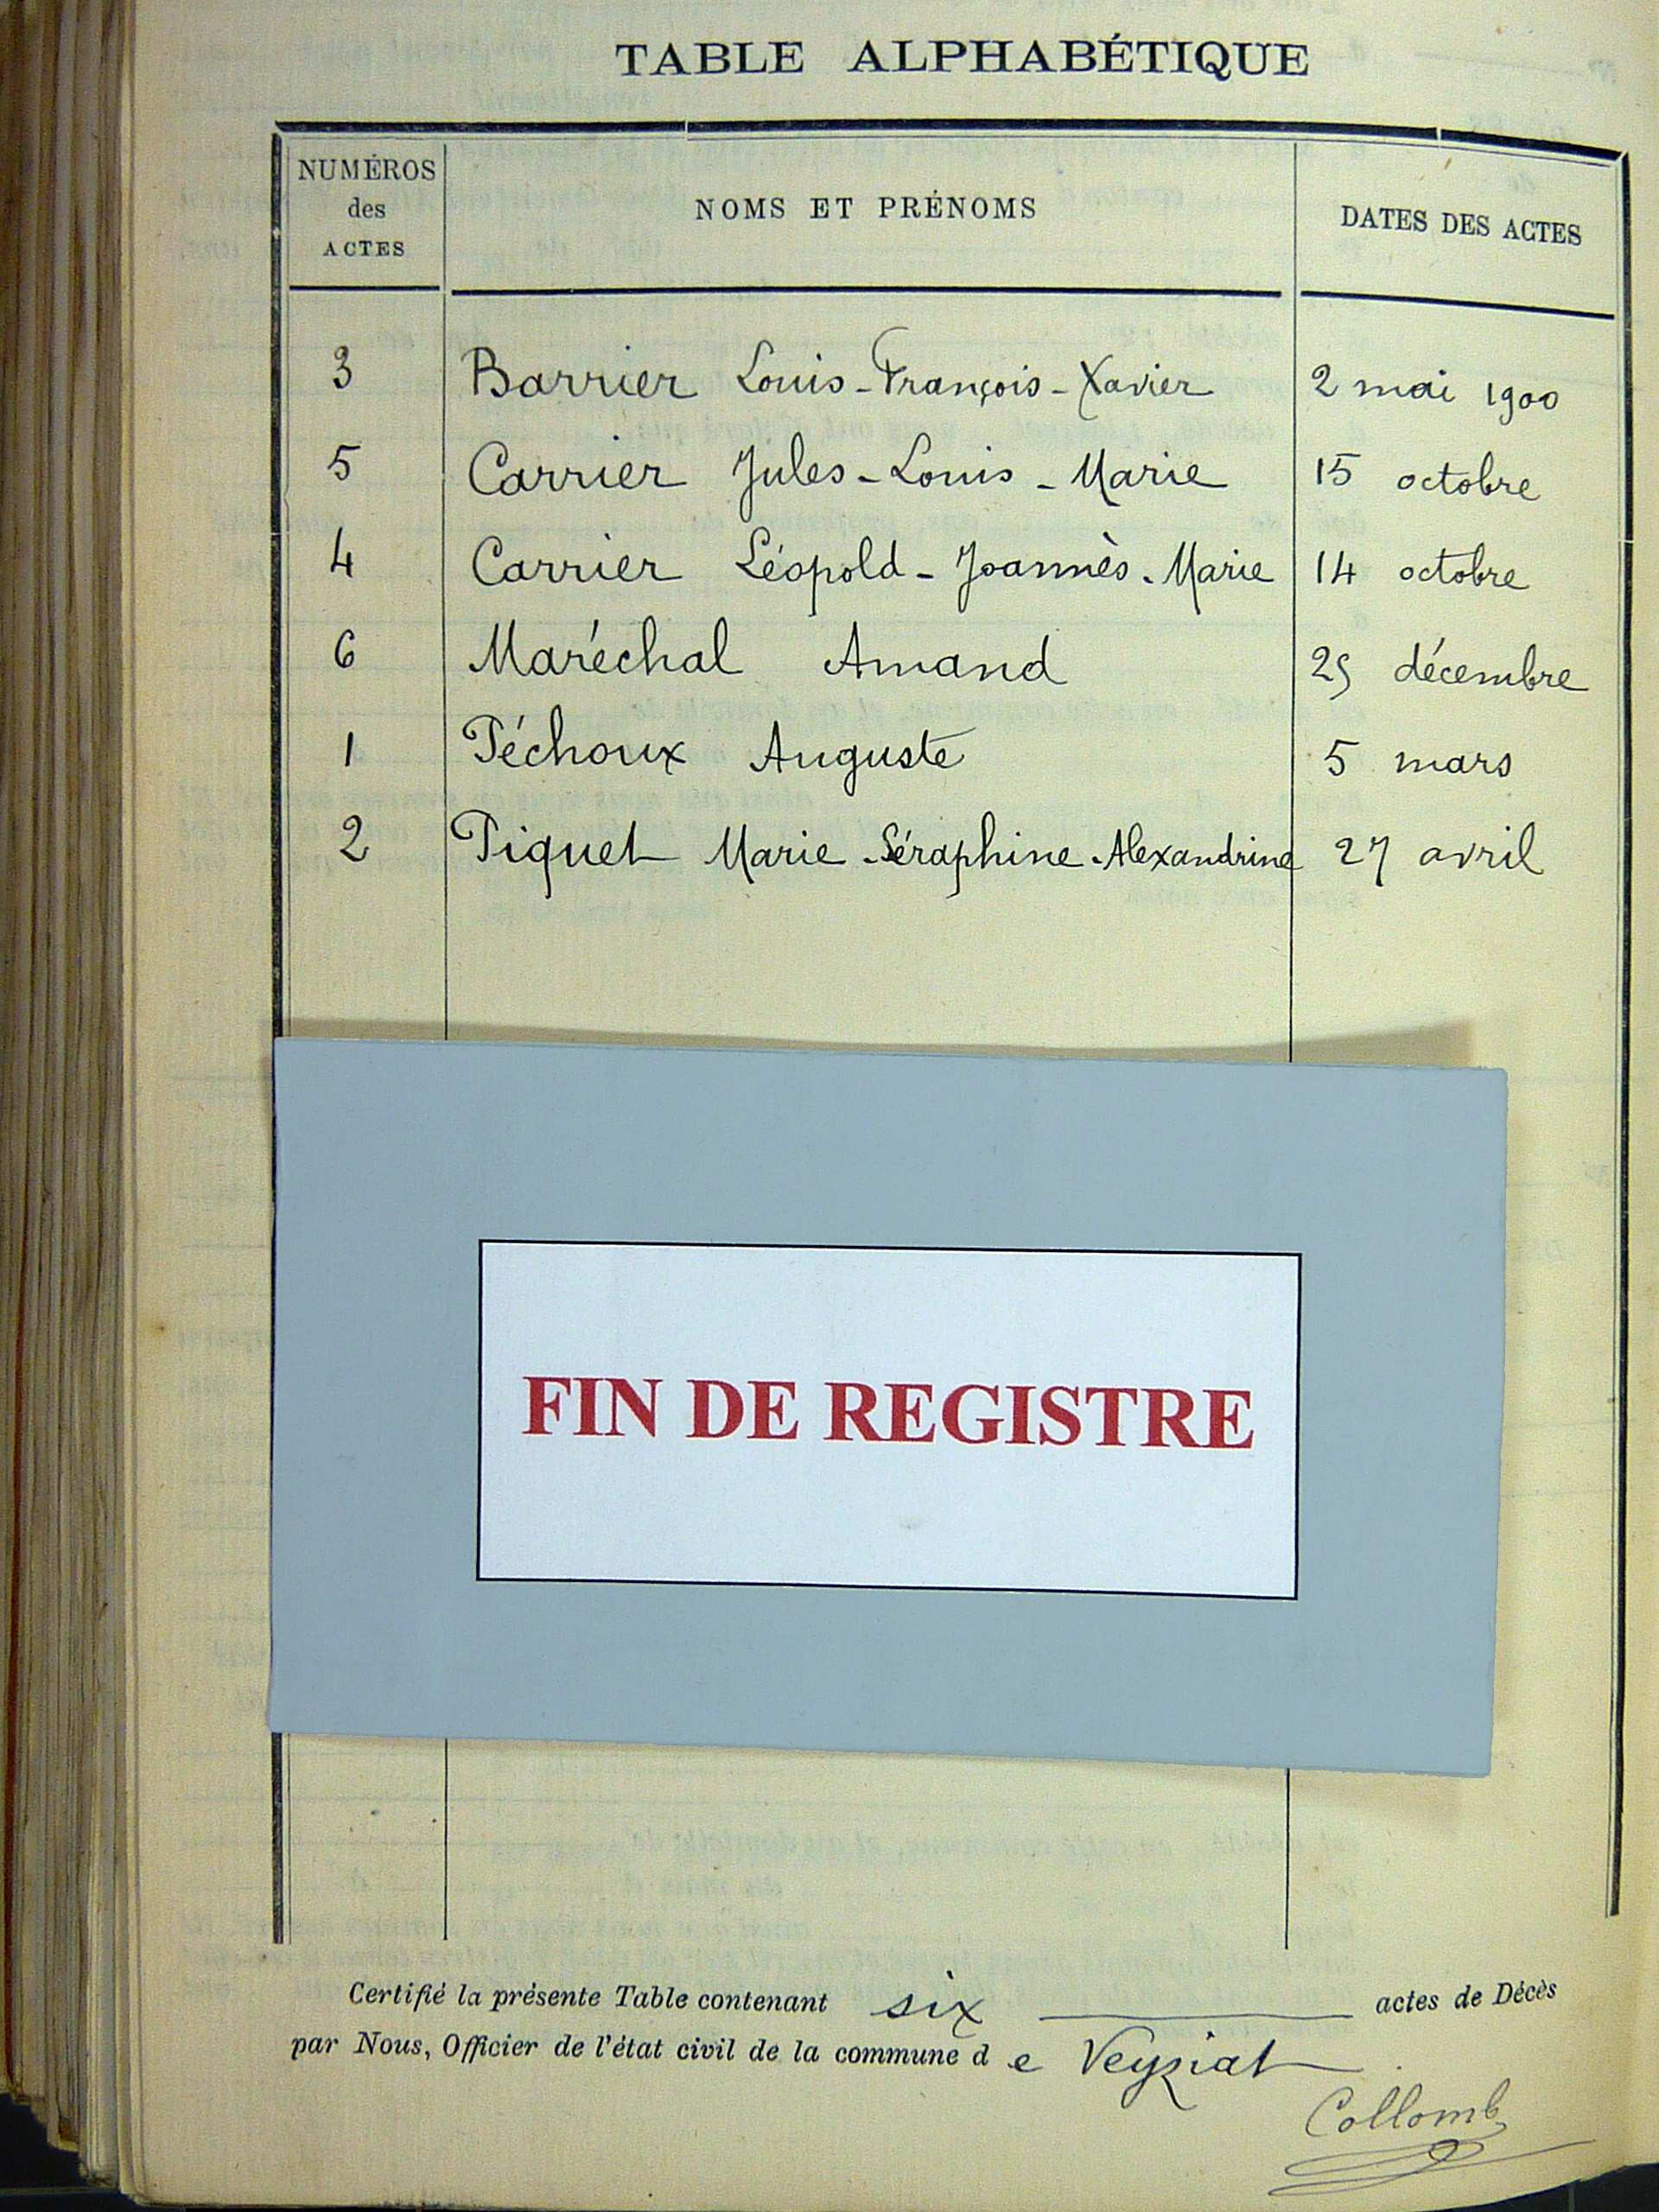 TABLE ALPHABÉTIQUE
NUMÉROS des ACTES NOMS ET PRÉNOMS DATES DES ACTES
3 Barrier Louis-François-Xavier 2 mai 1900
5 Carrier Jules-Louis-Marie 15 octobre
4 Carrier Léopold-Joannès-Marie 14 octobre
6 Maréchal Amand 25 décembre
1 Péchoux Auguste 5 mars
2 Piquet Marie-Séraphine-Alexandrine 27 avril
FIN DE REGISTRE
Certifié la présente Table contenant six actes de Décès
par Nous, Officier de l'état civil de la commune de Veyziat
Collomb